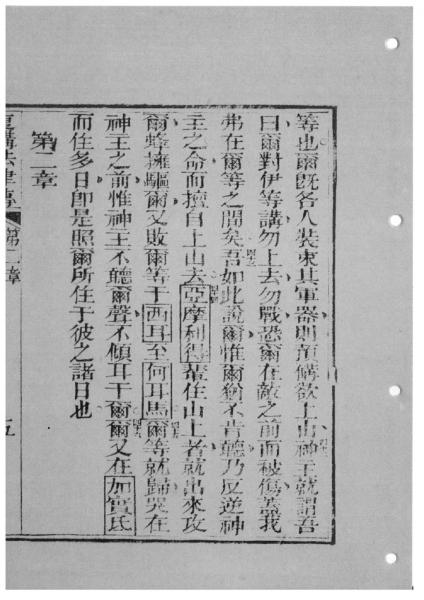 等也爾既各人裝束其軍器則預備欲上山神主就謂吾
曰爾對伊等講勿上去勿戰恐爾在敵之前而被傷蓋我
弗在爾等之間矣吾如此說爾惟爾猶不肯聽乃反逆神
主之命而擅自上山去亞摩利得輩住山上者就出來攻
爾蜂擁驅爾又敗爾等于西耳至何耳馬爾等就歸哭在
神主之前惟神主不聽爾聲不傾耳于爾爾又在加實氐
而住多日即是照爾所住于彼之諸日也
第二章
第二章
五